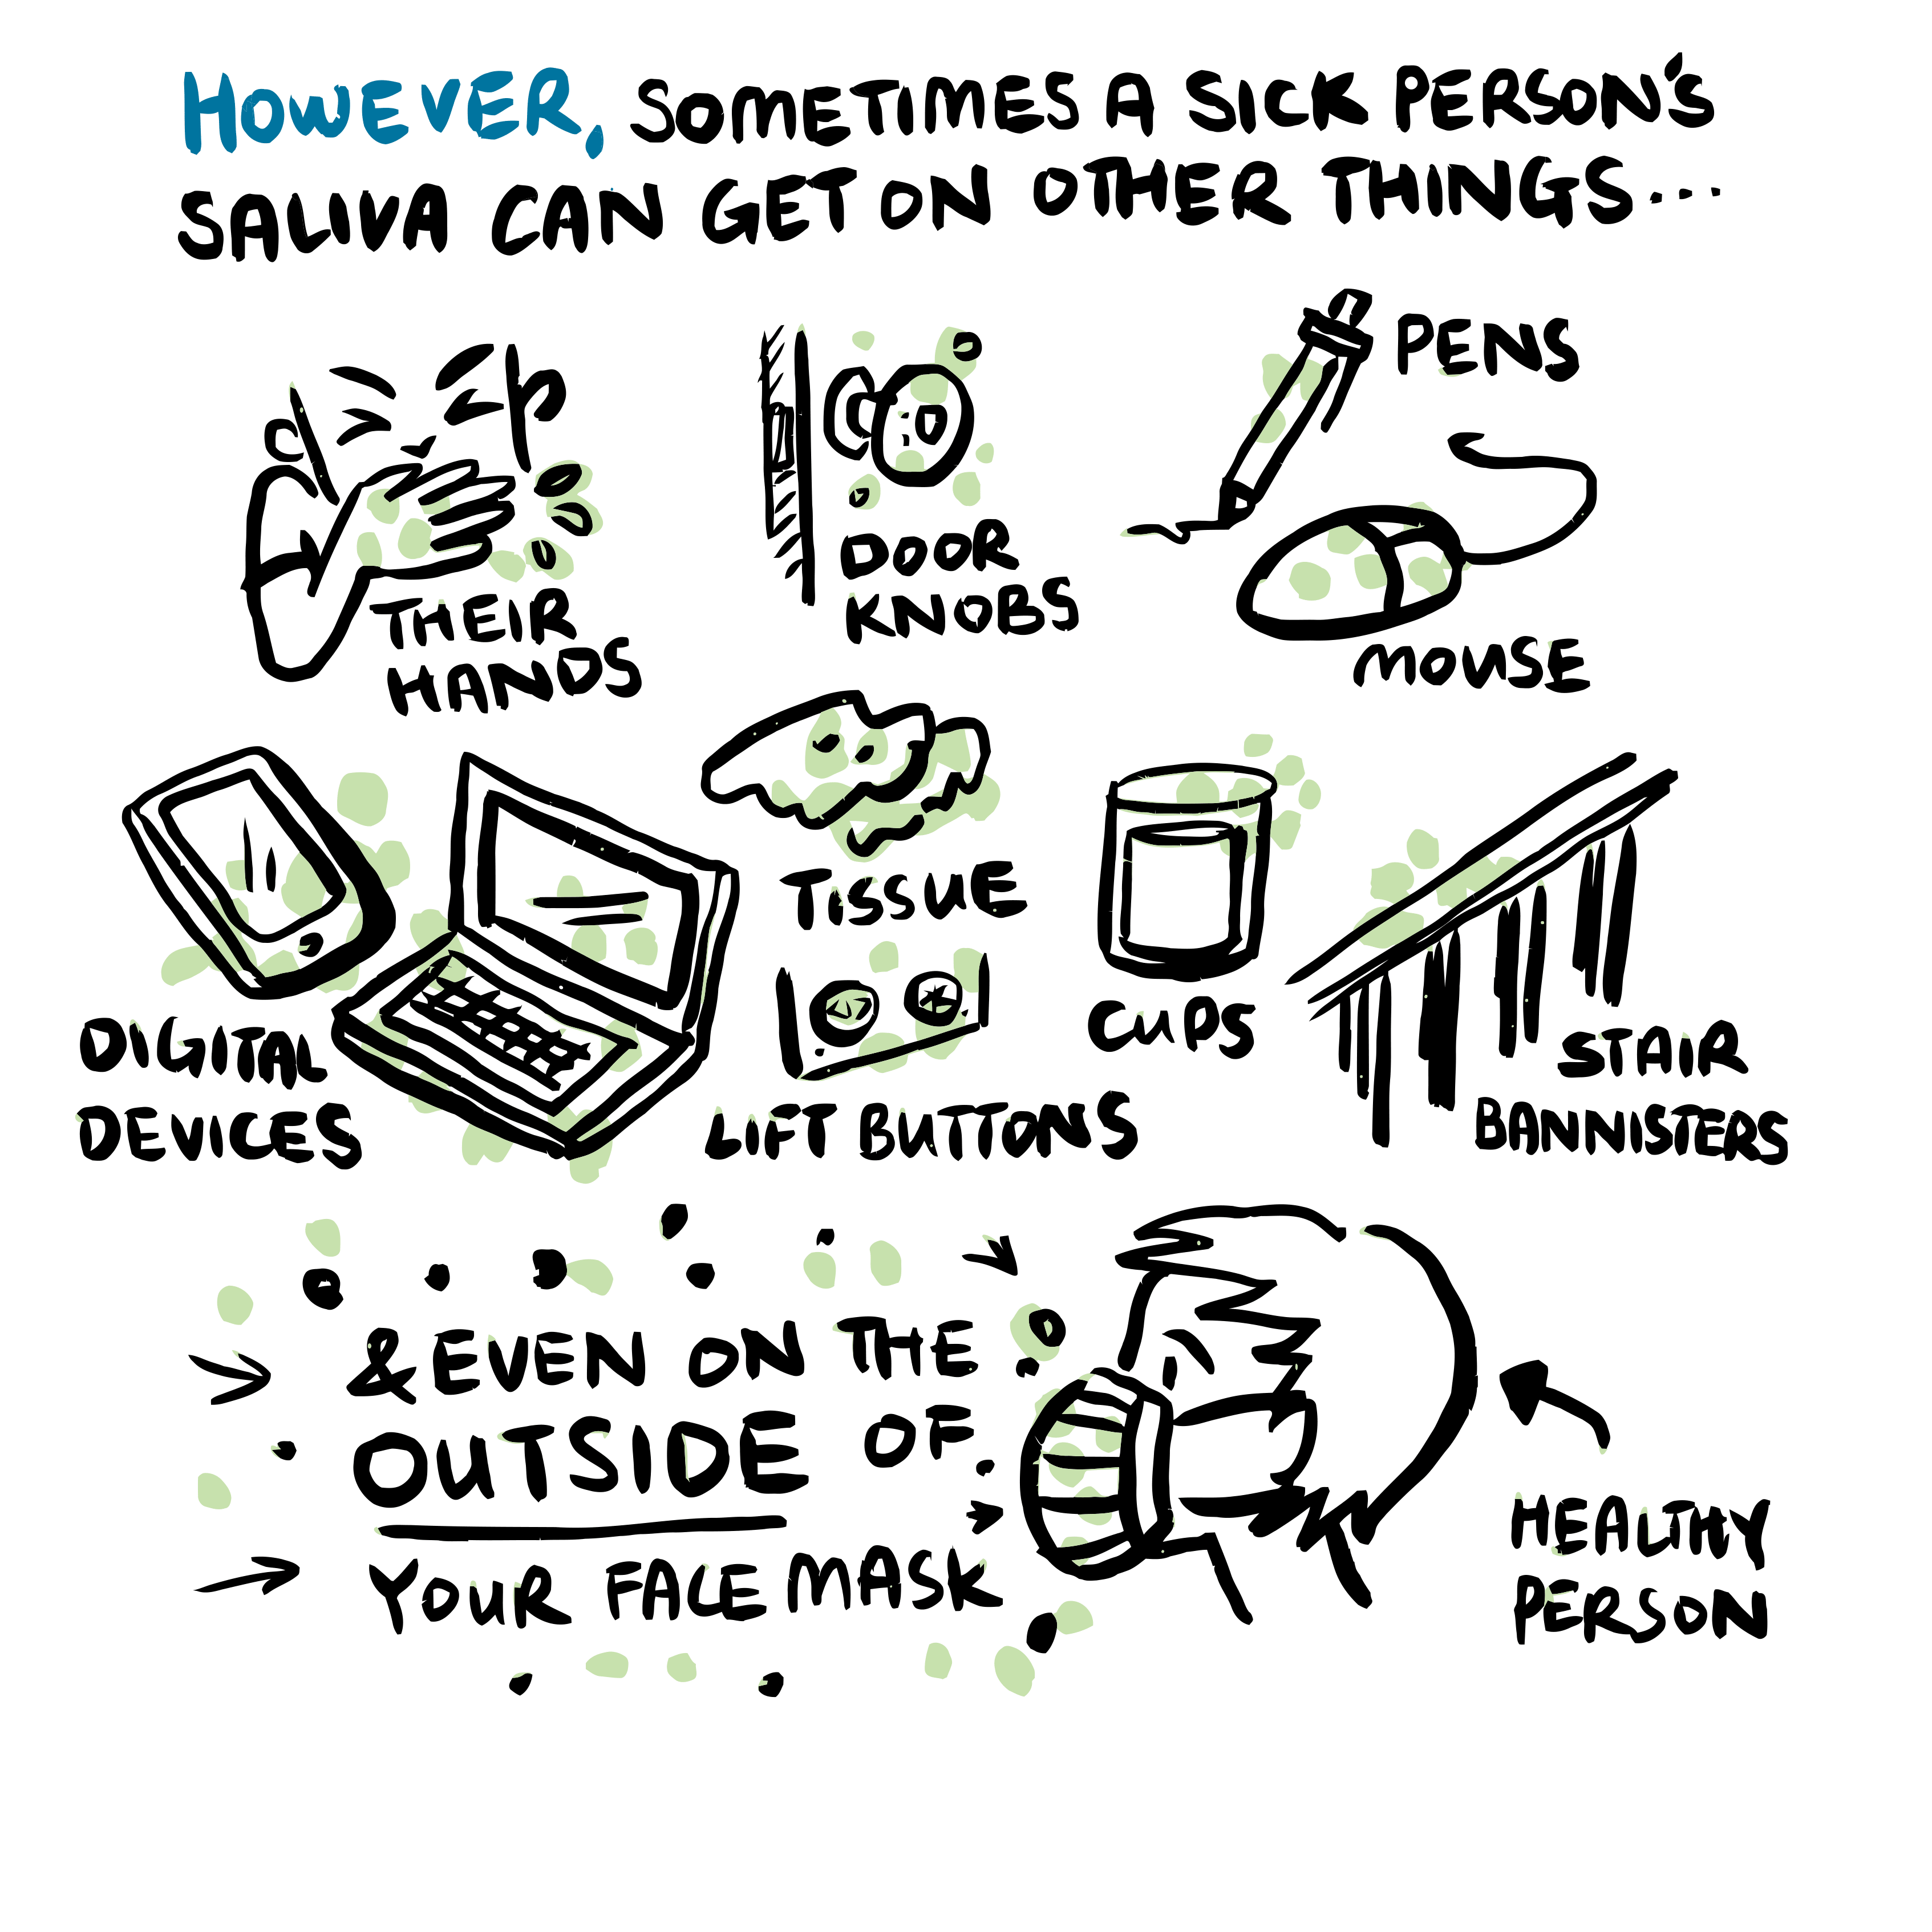 HOWEVER, SOMETIMES A SICK PERSON'S
SALIVA CAN GET ON OTHER THINGS...
THEIR
HANDS
DOOR
KNOBS
PENS
MOUSE
DIGITAL
DEVICES
TISSUE
LIFT BUTTONS
CUPS
STAIR
BANNISTERS
& EVEN ON THE
OUTSIDE OF
YOUR FACEMASK
HEALTHY
PERSON